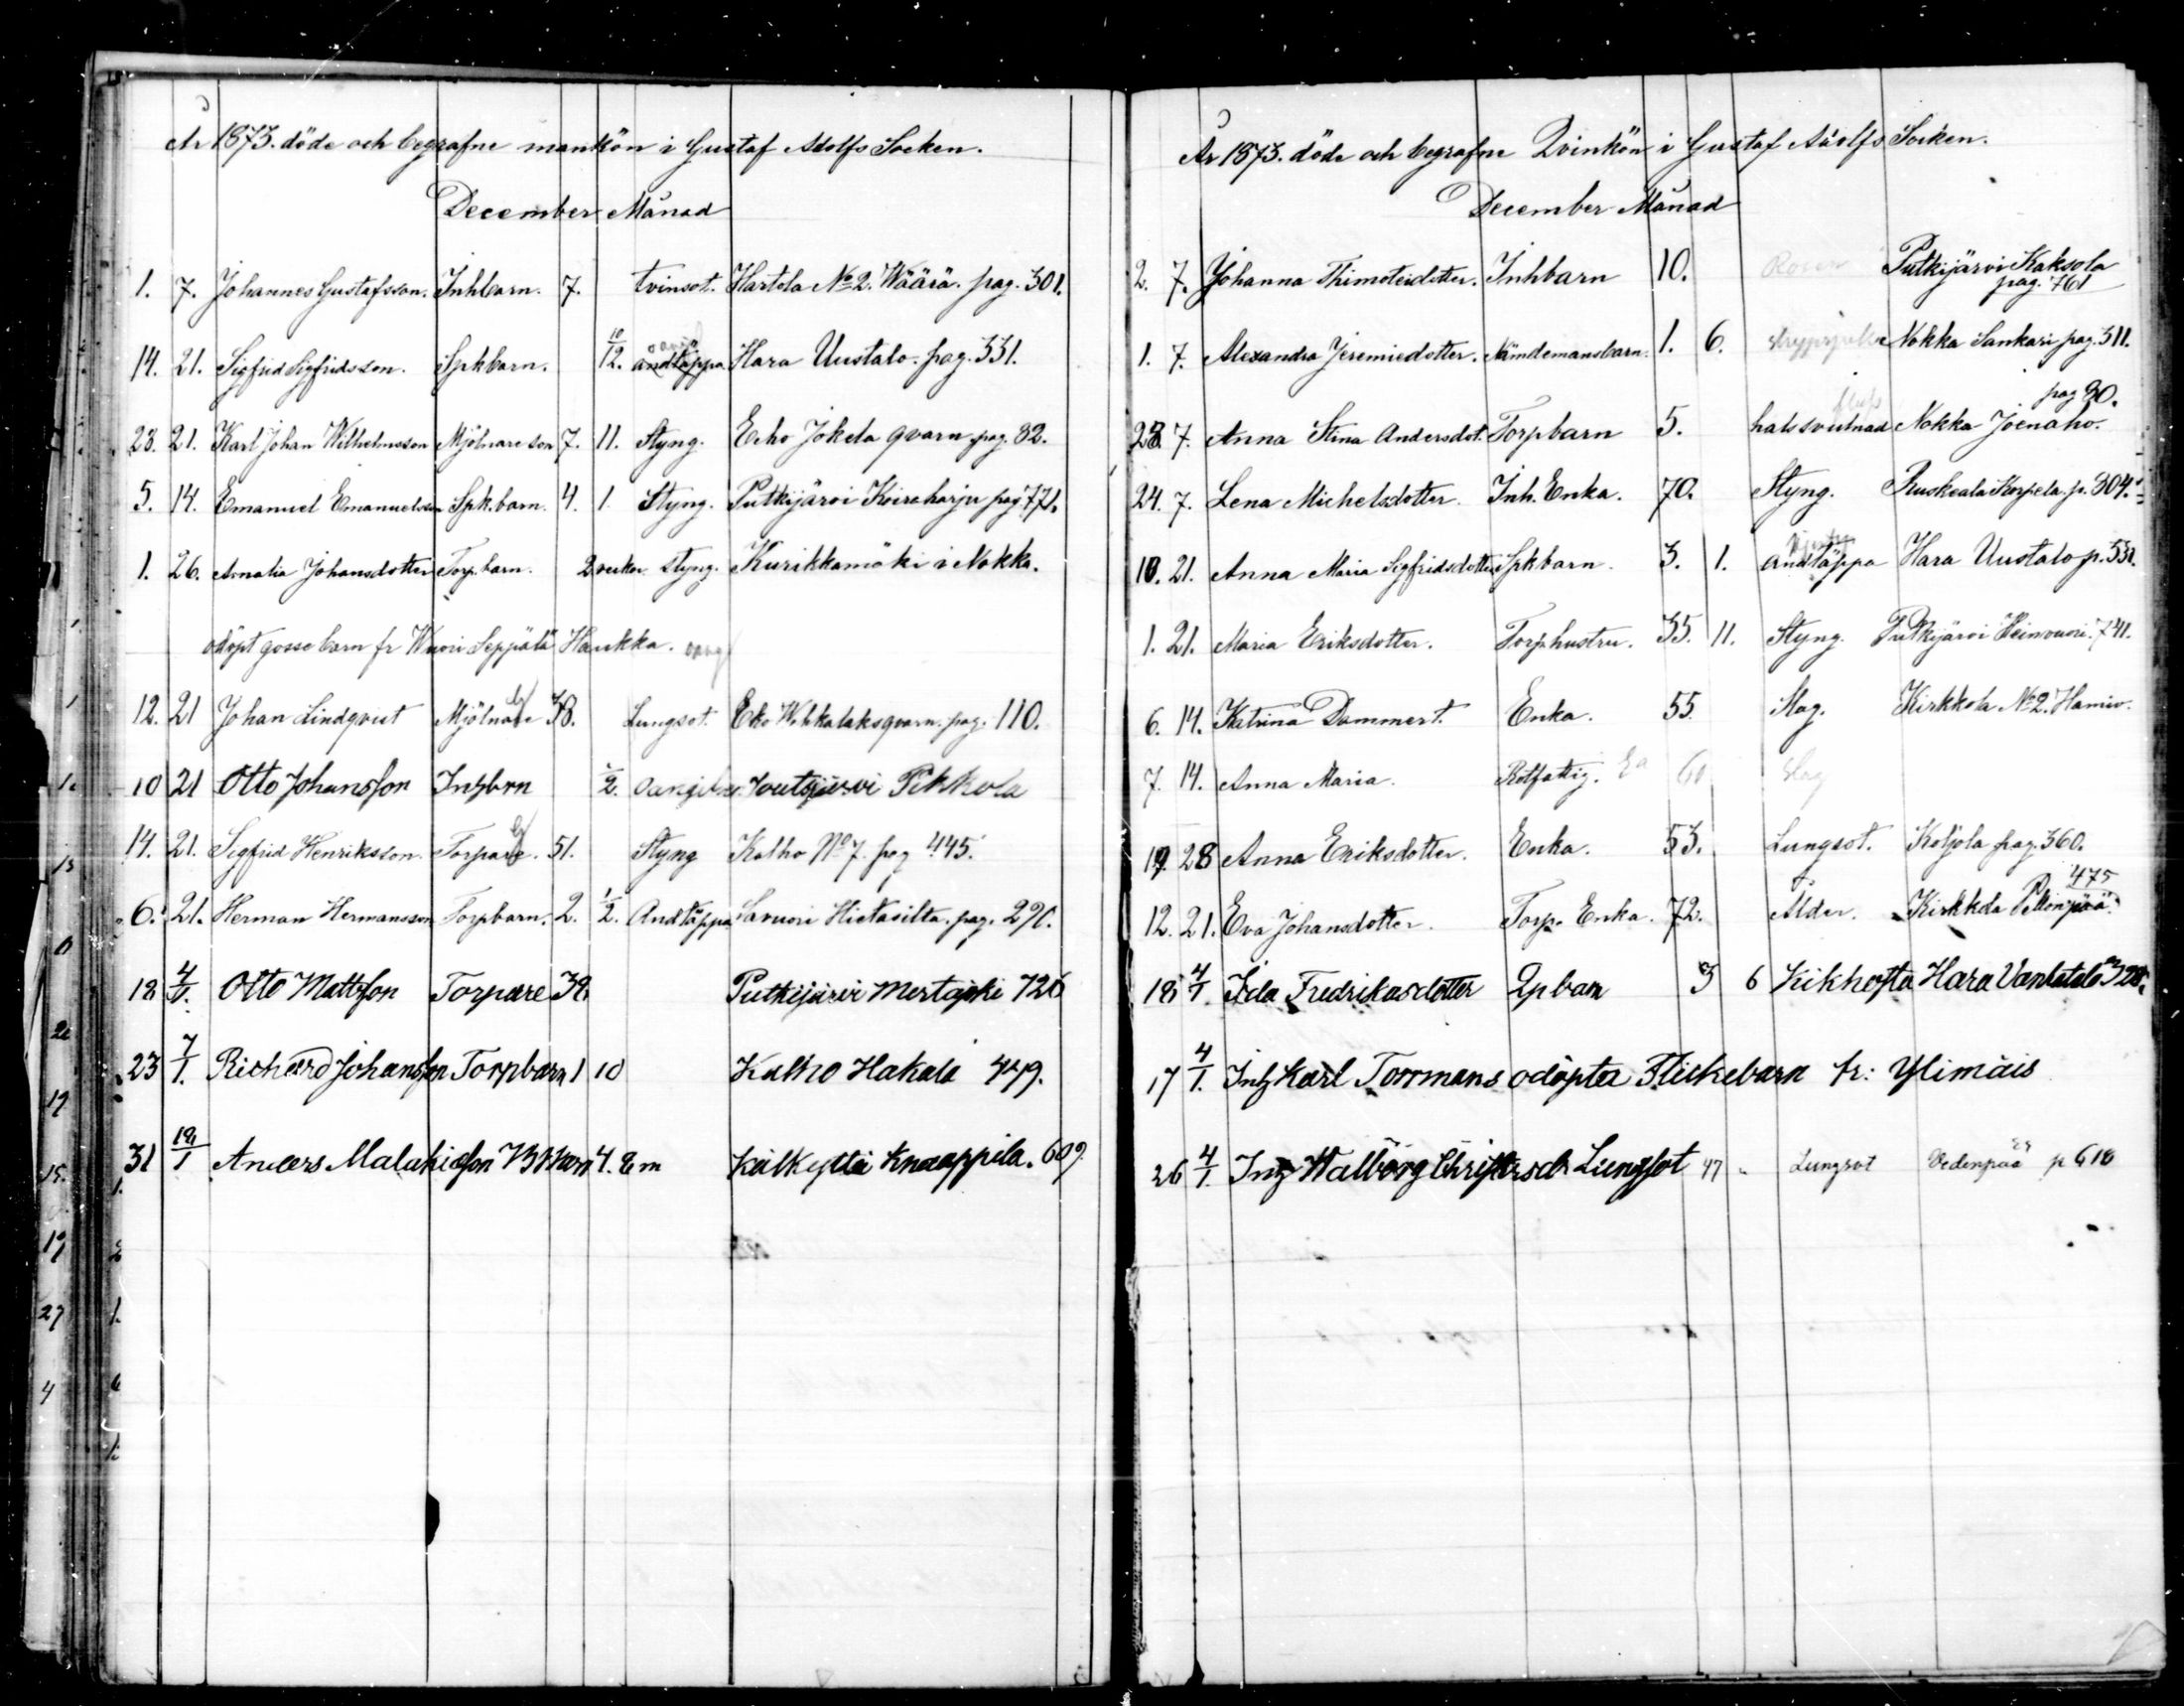 År 1873. döde och begrafne mankön i Gustaf Adolfs Socken.
December Månad
1. 7. Johannes Gustafsson. Inhbarn. 7. tvinsot. Hartola No 2. Wäärä. pag. 301.
14. 21. Sigfrid Sigfridsson. Spkbarn. 10/12. andtäppa Hara Uustalo. pag. 331.
23. 21. Karl Johan Wilhelmsson Mjölnare son 7. 11. Styng. Echo Jokela qvarn pag. 82.
5. 14. Emanuel Emanuelsson Spk.barn. 4. 1 Styng. Putkijärvi Koiraharju pag 771.
1. 26. Amalia Johansdotter Torp.barn. 2 veckor styng. Kurikkamäki i Nokka.
odöpt gosse barn fr Wuori Seppälä Haukka.
12. 21 Johan Lindqvist Mjölnare 38. Lungsot. Eko Wehkalaksqvarn. pag. 110.
10 21 Otto Johansson Inhbrn 1/2. Joutsjärvi Pikkola
14. 21. Sigfrid Henriksson. Torpare. 51. Styng Kalho No 7. pag 445.
6. 21. Herman Hermansson Torpbarn. 2. 1/2. Andtäppa Savuori Hietasilta. pag. 290.
18 4/1. Otto Mattsson Torpare 38 Putkijärvi Mertajoki 726
23 7/1. Richard Johansson Torpbarn 1 10 Kalho Hakala 449.
31 18/1 Anders Malakiasson 4. 8 m Kalkytta Knaappila. 609
År 1873. döde och begrafne Qvinkön i Gustaf Adolfs Socken.
December Månad
2. 7. Johanna Thimoteidotter. Inhbarn 10. Putkijärvi Kaksola
pag. 761
1. 7. Alexandra Jeremiedotter. Nämdemansbarn. 1. 6. strypsjuka Nokka Sankari pag. 311.
pag 30.
28 7. Anna Stina Andersdot. Torpbarn 5. halssvulnad Nokka Joenaho.
24. 7. Lena Michelsdotter. Inh. Enka. 70. Styng. Ruskeala Korpela. p. 304.
10. 21. Anna Maria Sigfridsdotter Spkbarn. 3. 1. andtäppa Hara Uustalo p. 331.
1. 21. Maria Eriksdotter. Torphustru. 35. 11. Styng. Putkijärvi Heinvuori. 741.
6. 14. Katrina Dammert. Enka. 55. Slag. Kirkkola No 2. Hamiv.
7. 14. Anna Maria. Rotfattig. Ea 60 Slag
19 28 Anna Eriksdotter. Enka. 53. Lungsot. Koljola pag. 360.
475
12. 21. Eva Johansdotter. Torp. Enka. 72. Ålder. Kirkkola Pekonpää.
18 4/1 Ida Fredrikasdotter Spbarn 3 6 Kikhosta Hara Vanhatalo 328.
17 4/1. Inh Karl Tormans odöpta Flickebarn fr: Ylimäis
26 4/1. Inh Walborg Christersdr Lungsot 47 " Lungsot Vedenpää p 618